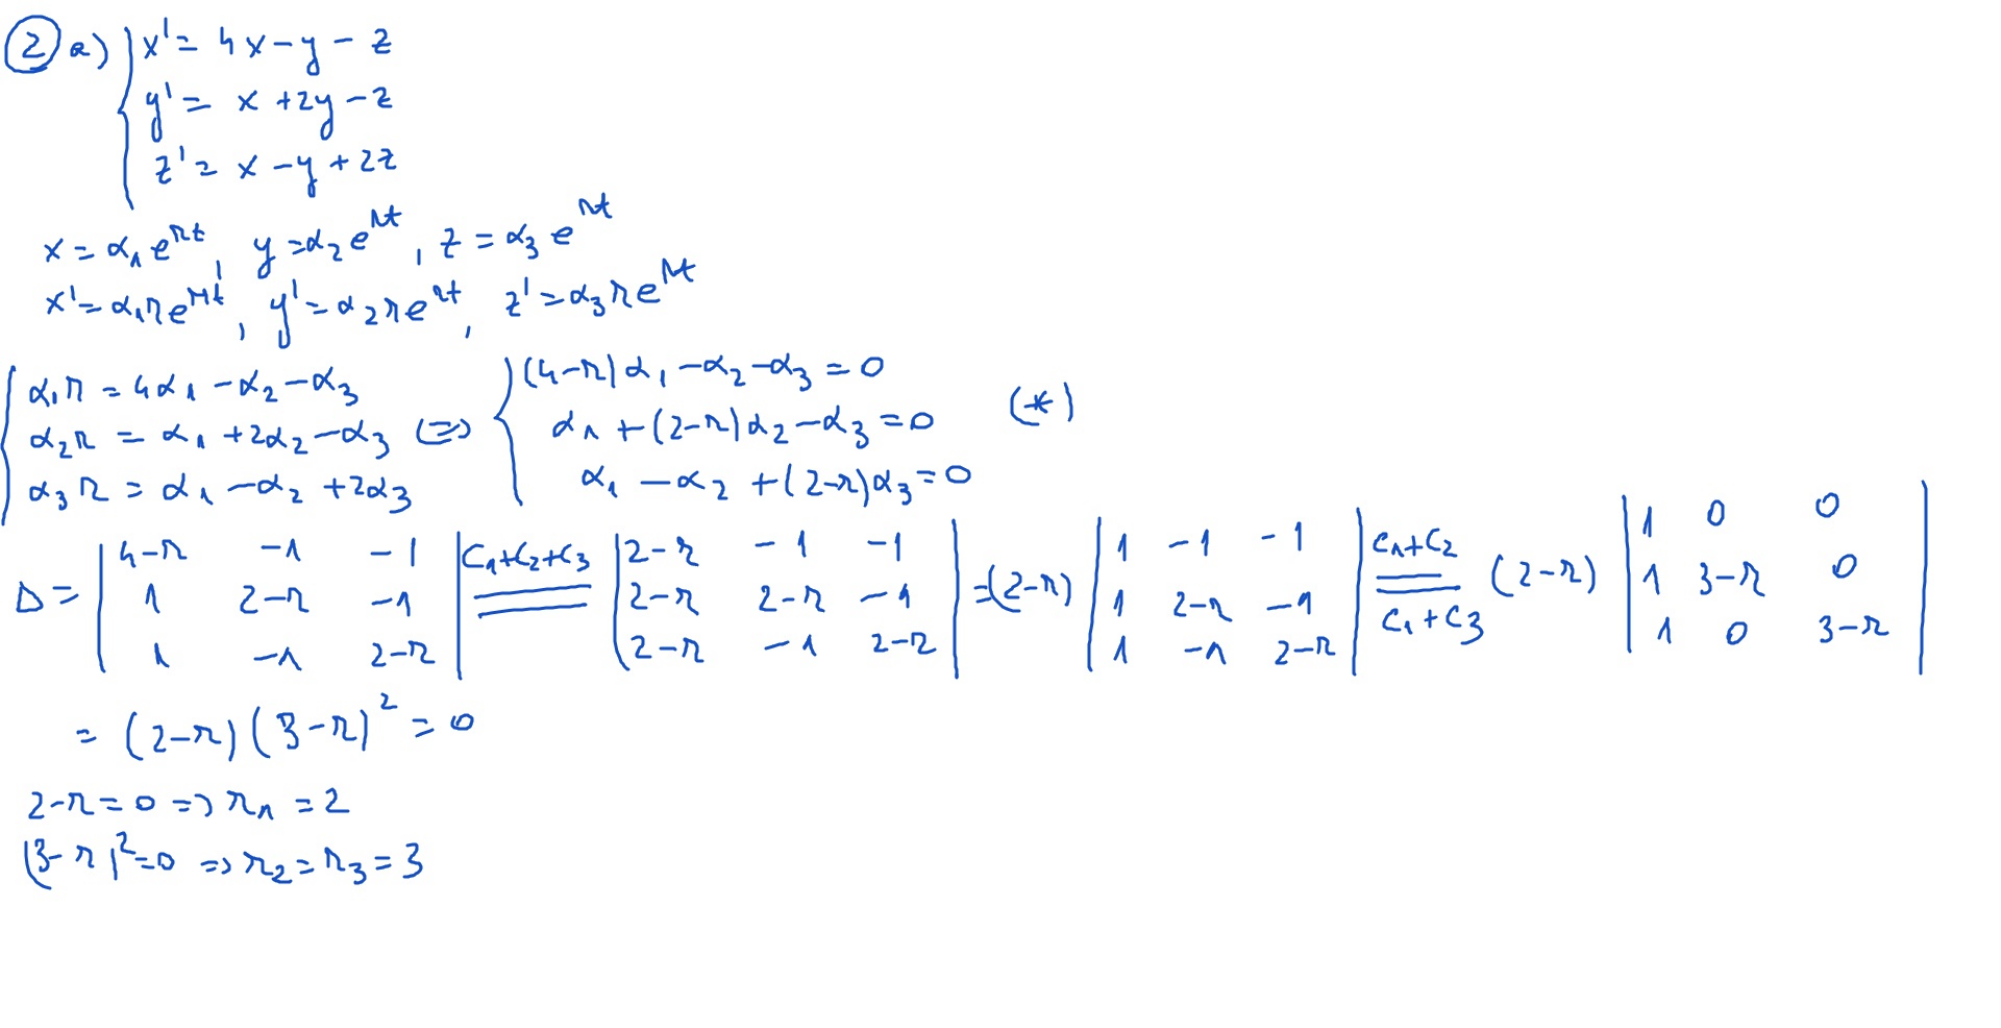 ② a) { x' = 4x - y - z
y' = x + 2y - z
z' = x - y + 2z
x = α₁e^{rt}, y = α₂e^{rt}, z = α₃e^{rt}
x' = α₁re^{rt}, y' = α₂re^{rt}, z' = α₃re^{rt}
{ α₁r = 4α₁ - α₂ - α₃
α₂r = α₁ + 2α₂ - α₃
α₃r = α₁ - α₂ + 2α₃
⇔ { (4-r)α₁ - α₂ - α₃ = 0
α₁ + (2-r)α₂ - α₃ = 0 (*)
α₁ - α₂ + (2-r)α₃ = 0
Δ = | 4-r -1 -1 | C₁+C₂+C₃ | 2-r -1 -1 | = (2-r) | 1 -1 -1 | C₁+C₂ (2-r) | 1 0 0 |
| 1 2-r -1 | = | 2-r 2-r -1 | | 1 2-r -1 | = | 1 3-r 0 |
| 1 -1 2-r | | 2-r -1 2-r | | 1 -1 2-r | C₁+C₃ | 1 0 3-r |
= (2-r)(3-r)² = 0
2-r = 0 => r₁ = 2
(3-r)² = 0 => r₂ = r₃ = 3